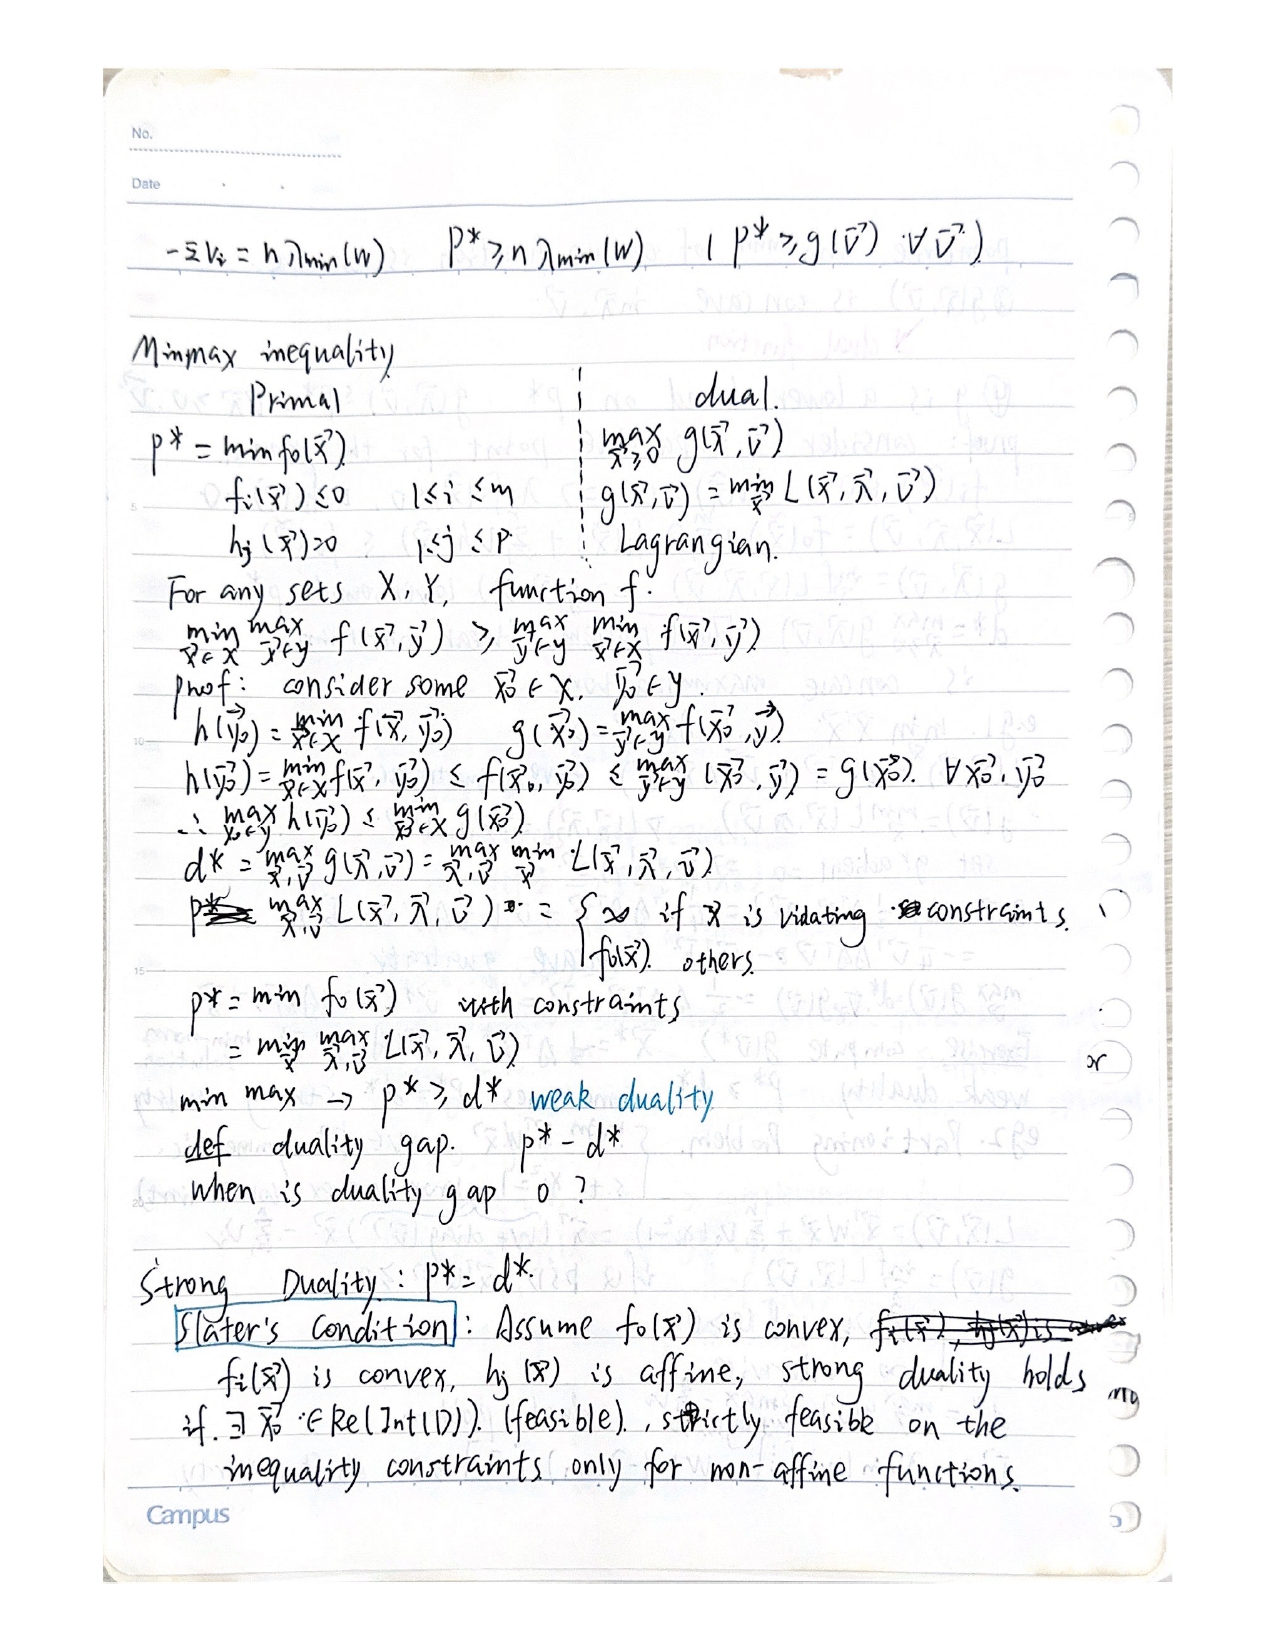 No.
Date
-Σvᵢ = nλmin(W)  p* ≥ nλmin(W)  ( p* ≥ g(v⃗) ∀ v⃗ )
Minmax inequality
Primal  dual.
p* = min f₀(x⃗)  max_{λ⃗≥0} g(λ⃗, v⃗)
fᵢ(x⃗) ≤ 0  1 ≤ i ≤ m  g(λ⃗, v⃗) = min_{x⃗} L(x⃗, λ⃗, v⃗)
hⱼ(x⃗) = 0  1 ≤ j ≤ p  Lagrangian.
For any sets X, Y, function f.
min_{x⃗∈X} max_{y⃗∈Y} f(x⃗, y⃗) ≥ max_{y⃗∈Y} min_{x⃗∈X} f(x⃗, y⃗)
proof: consider some x⃗₀ ∈ X, y⃗₀ ∈ Y.
h(y⃗₀) = min_{x⃗∈X} f(x⃗, y⃗₀)  g(x⃗₀) = max_{y⃗∈Y} f(x⃗₀, y⃗)
h(y⃗₀) = min_{x⃗∈X} f(x⃗, y⃗₀) ≤ f(x⃗₀, y⃗₀) ≤ max_{y⃗∈Y} (x⃗₀, y⃗) = g(x⃗₀). ∀ x⃗₀, y⃗₀
∴ max_{y₀∈Y} h(y⃗₀) ≤ min_{x⃗₀∈X} g(x⃗₀)
d* = max_{λ⃗,v⃗} g(λ⃗, v⃗) = max_{λ⃗,v⃗} min_{x⃗} L(x⃗, λ⃗, v⃗)
p* max_{λ⃗,v⃗} L(x⃗, λ⃗, v⃗) = { ∞ if x⃗ is violating constraints.
f₀(x⃗). others.
p* = min f₀(x⃗) with constraints
= min_{x⃗} max_{λ⃗,v⃗} L(x⃗, λ⃗, v⃗)
or
min max → p* ≥ d* weak duality
def duality gap. p* - d*
when is duality gap 0 ?
Strong Duality : p* = d*.
Slater's Condition : Assume f₀(x⃗) is convex,
fᵢ(x⃗) is convex, hⱼ(x⃗) is affine, strong duality holds
if. ∃ x⃗₀ ∈ Rel Int(D)). (feasible). , strictly feasible on the
inequality constraints only for non-affine functions.
Campus